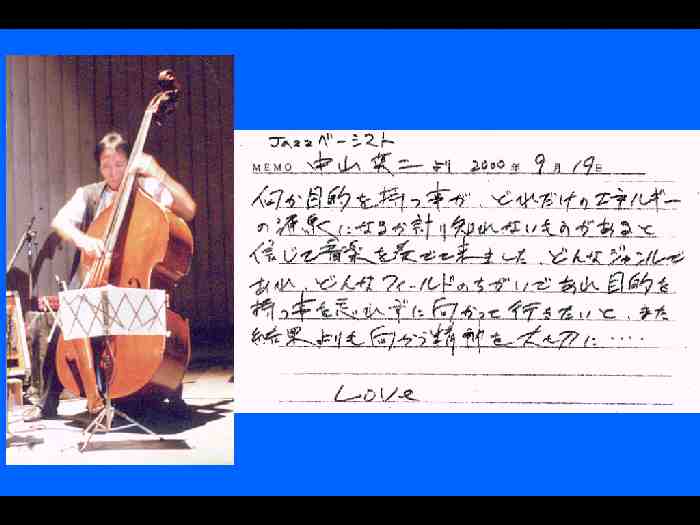 Jazzベーシスト
MEMO 中山英二より 2000年9月19日
何か目的を持つ事が、どれだけのエネルギー
の源泉になるか計り知れないものがあると
信じて音楽を奏でて来ました、どんなジャンルで
あれ、どんなフィールドのちがいであれ目的を
持つ事を忘れずに向かって行きたいと、また
結果よりも向かう精神を大切に・・・・
Love